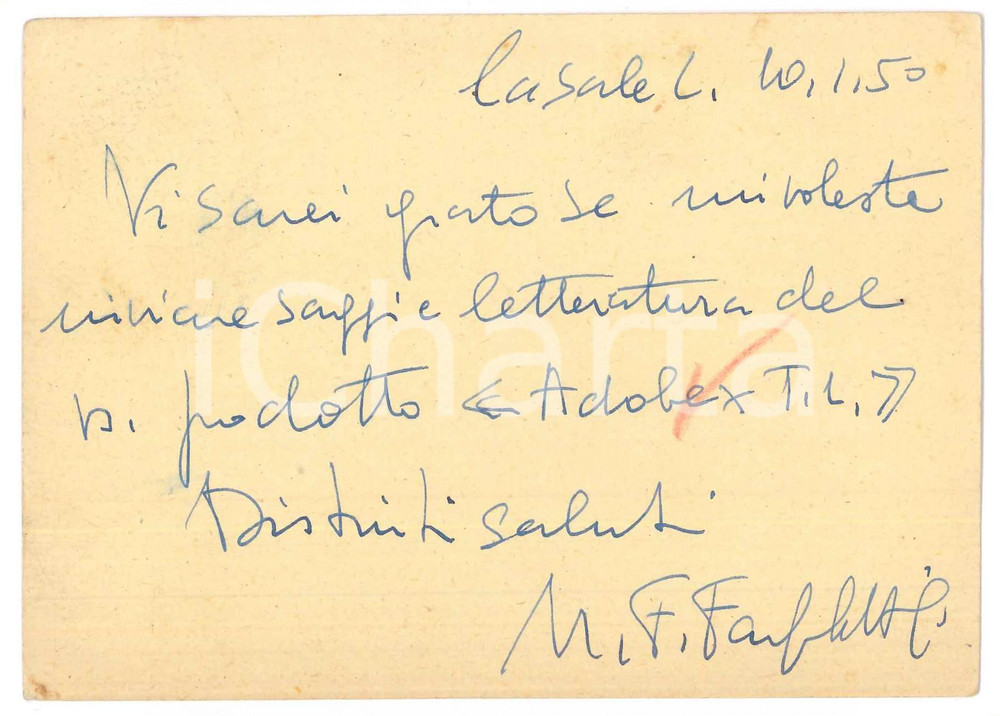 Casale L. 10.1.50
Vi sarei grato se mi voleste
inviare saggi e letteratura del
vs. prodotto « Adobex T.L. »
Distinti saluti
M. F.
iCharta